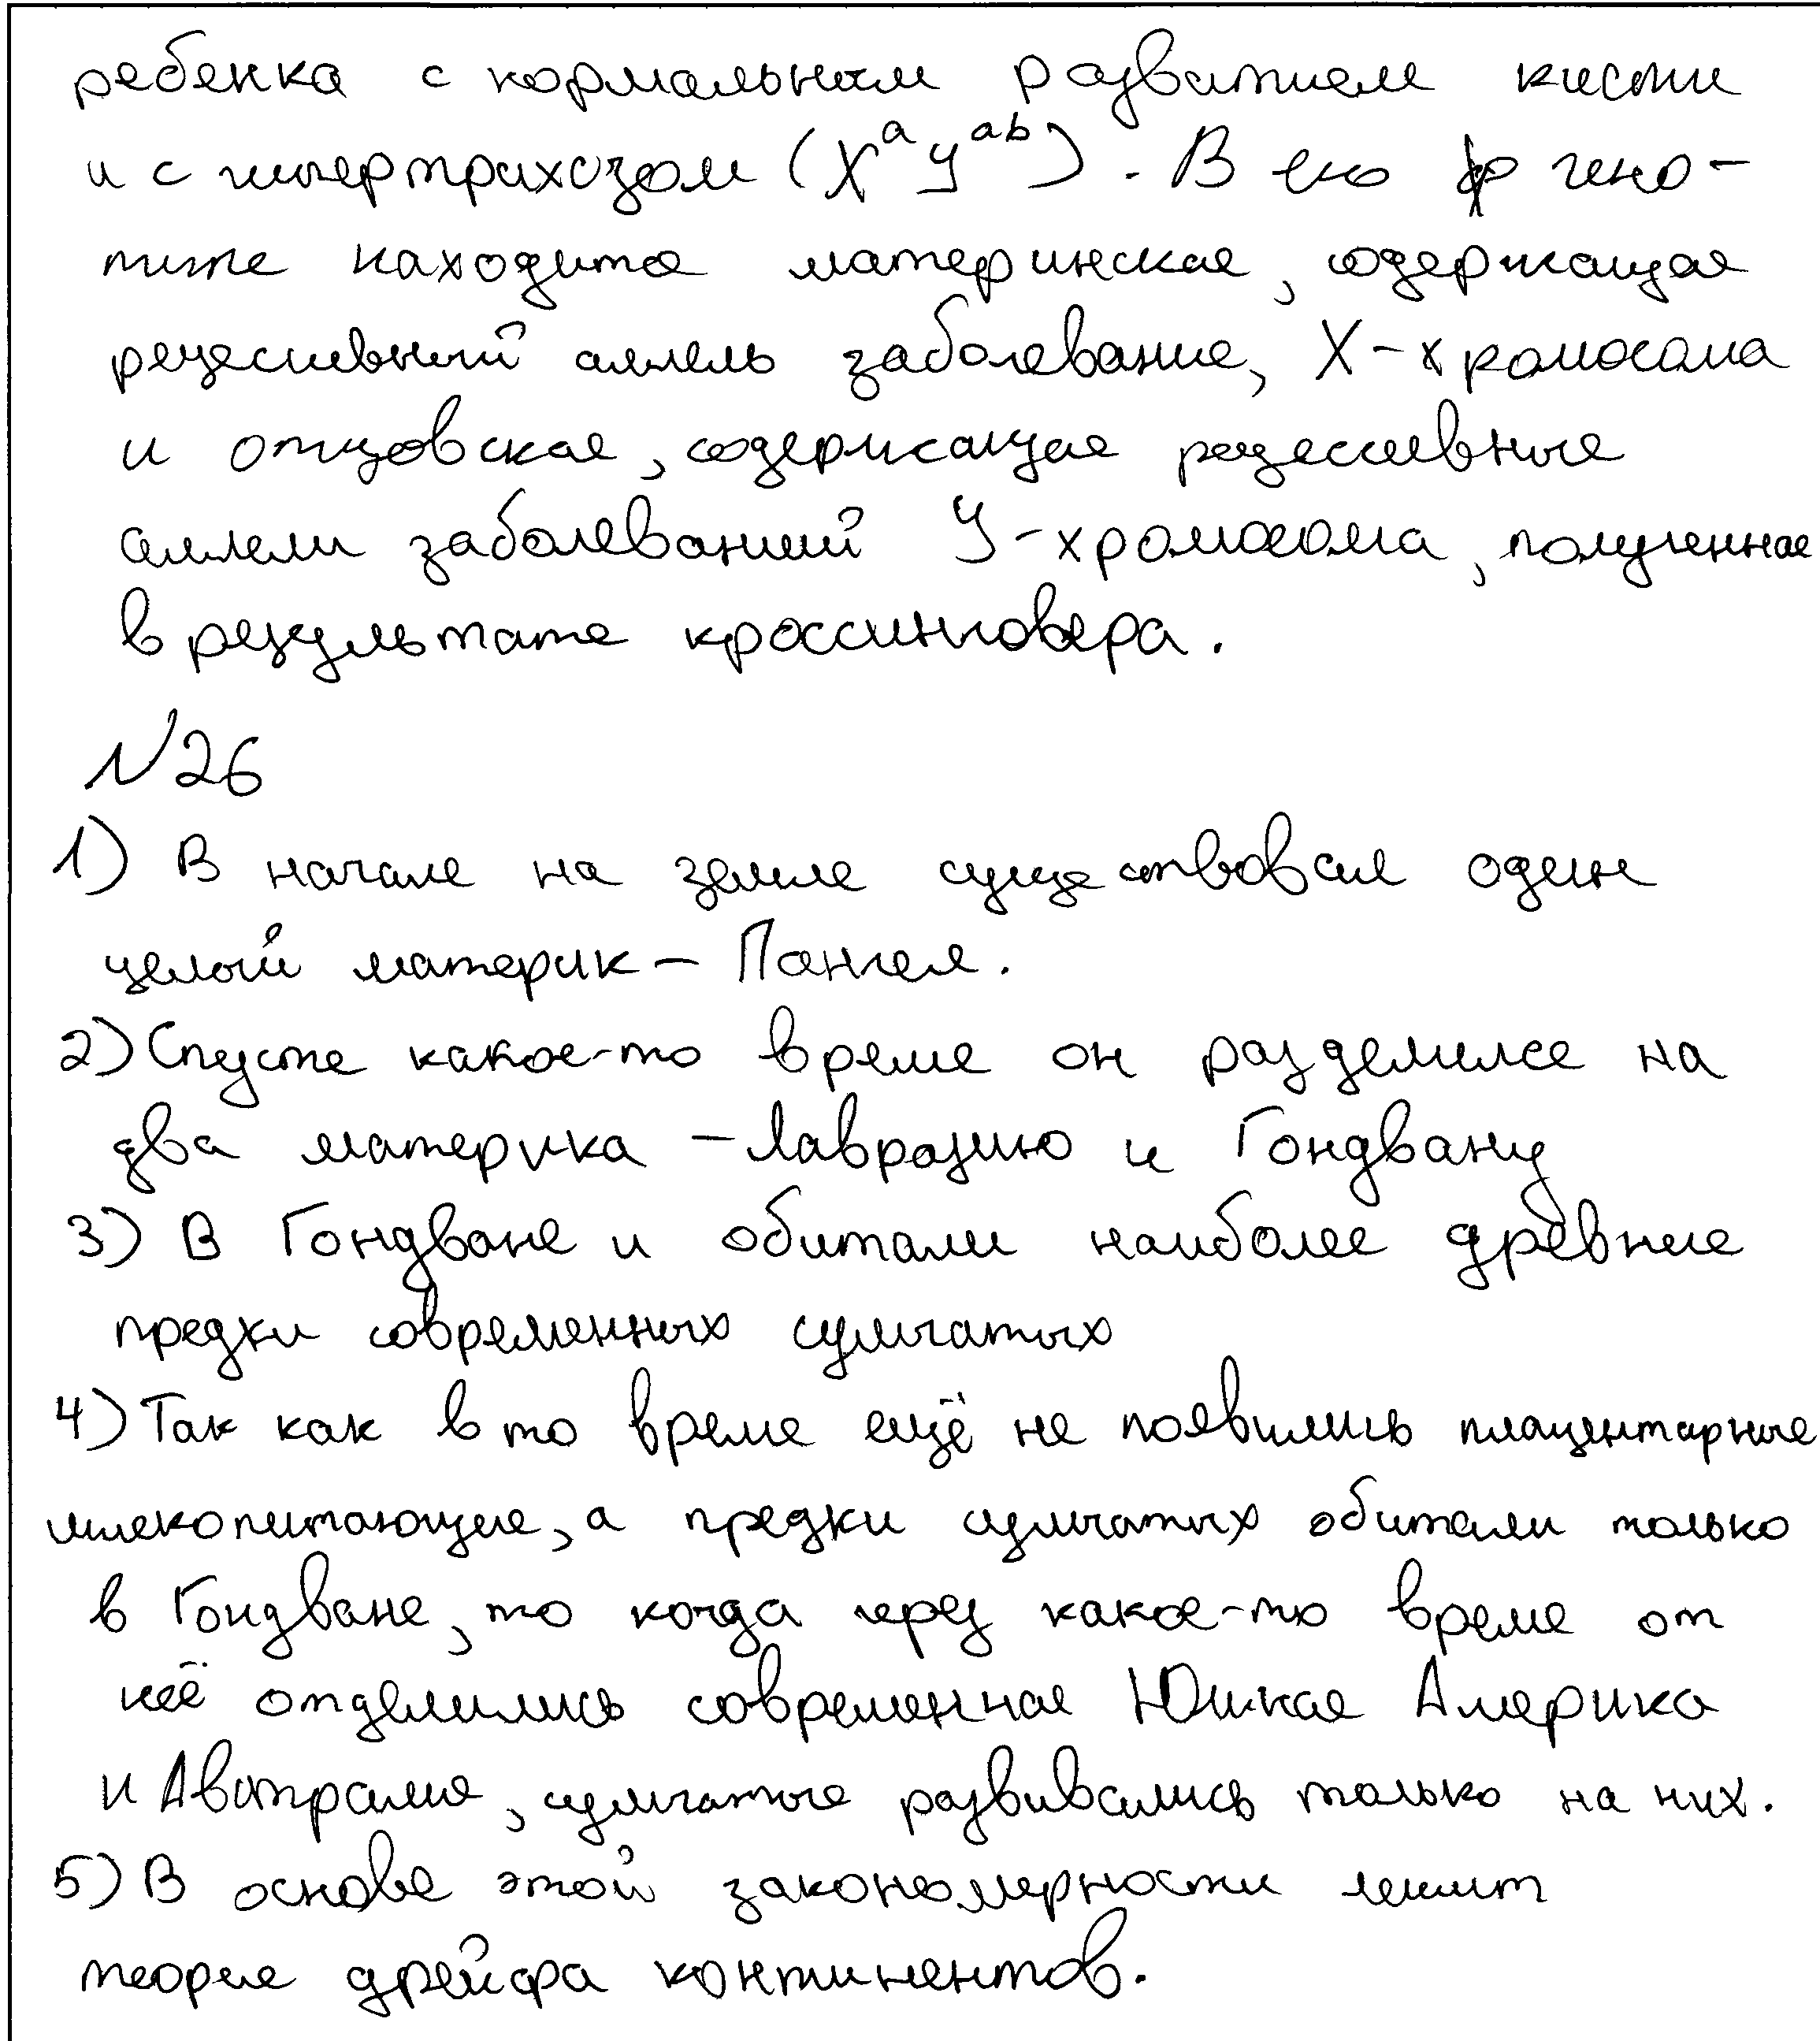 ребенка с нормальным развитием кисти
и с гипертрихозом (Xᵃ Yᵃᵇ). В его гено-
типе находится материнская, содержащая
рецессивный аллель заболевания, X-хромосома
и отцовская, содержащая рецессивные
аллели заболеваний Y-хромосома, полученная
в результате кроссинговера.
№26
1) В начале на земле существовал один
целый материк – Пангея.
2) Спустя какое-то время он разделился на
два материка – Лавразию и Гондвану
3) В Гондване и обитали наиболее древние
предки современных сумчатых
4) Так как в то время ещё не появились плацентарные
млекопитающие, а предки сумчатых обитали только
в Гондване, то когда через какое-то время от
неё отделились современная Южная Америка
и Австралия, сумчатые развивались только на них.
5) В основе этой закономерности лежит
теория дрейфа континентов.